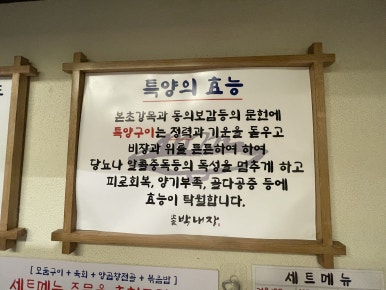 특양의 효능
본초강목과 동의보감등의 문헌에
특양구이는 정력과 기운을 돋우고
비장과 위를 튼튼하여 하여
당뇨나 알콜중독등의 독성을 멈추게 하고
피로회복, 양기부족, 골다공증 등에
효능이 탁월합니다.
박내장
[모둠구이 + 육회 + 양곱창전골 + 볶음밥]
세트메뉴